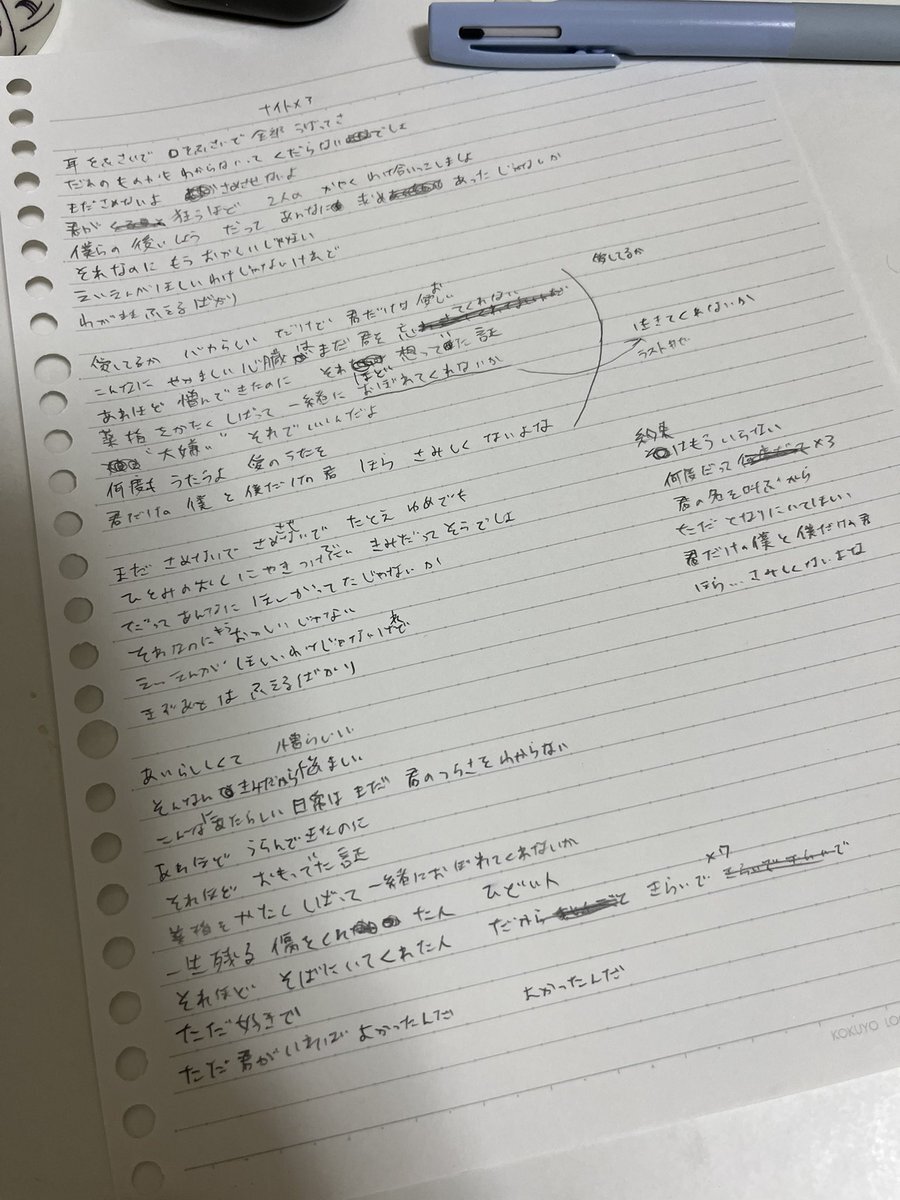 ナイト×3
耳をふさいで 口をふさいで 全部 うばってさ
だれのものかも わからないって くだらないでしょ
まださめないよ さめさせないよ
君が 狂うほど 2人の かやく わけ合いっこしましょ
僕らの 後いしょう だって あんなに 求め あったじゃないか
それなのに もう おかしいじゃない
えいえんがほしいわけじゃないけれど
わがまま ふえるばかり
愛してるか バカらしい だけど 君だけは 愛おしい
こんなに やかましい 心臓は まだ 君を 忘
あれほど 憎んできたのに それほど 想ってた 証
薬指をかたくしばって 一緒に おぼれてくれないか
“大嫌い” それでいいんだよ
何度も うたうよ 愛のうたを
君だけの 僕と 僕だけの 君 ほら さみしくないよな
愛してるか
生きてくれないか
ラストサビ
約束はもういらない
何度だって ×3
君の名を叫ぶから
ただ となりにいてほしい
君だけの僕と 僕だけの君
ほら… さみしくないよな
まだ さめないで さめさせないで たとえ ゆめでも
ひとみの おくに やきつけたい きみだってそうでしょ
だって あんなに ほしがってたじゃないか
それなのに もう おかしいじゃない
えいえんが ほしいわけじゃないけれど
きずあとは ふえるばかり
あいらしくて 憎らしい
そんな きみだから 悩ましい
こんなに あたらしい 日常は まだ 君のつらさを わからない
あれほど うらんできたのに
それほど おもってた 証
薬指を かたく しばって 一緒に おぼれてくれないか
一生 残る 傷をくれた人 ひどい人
それほど そばにいてくれた人 だから きらいで ×7
ただ 好きで
ただ 君がいれば よかったんだ よかったんだ
KOKUYO LO